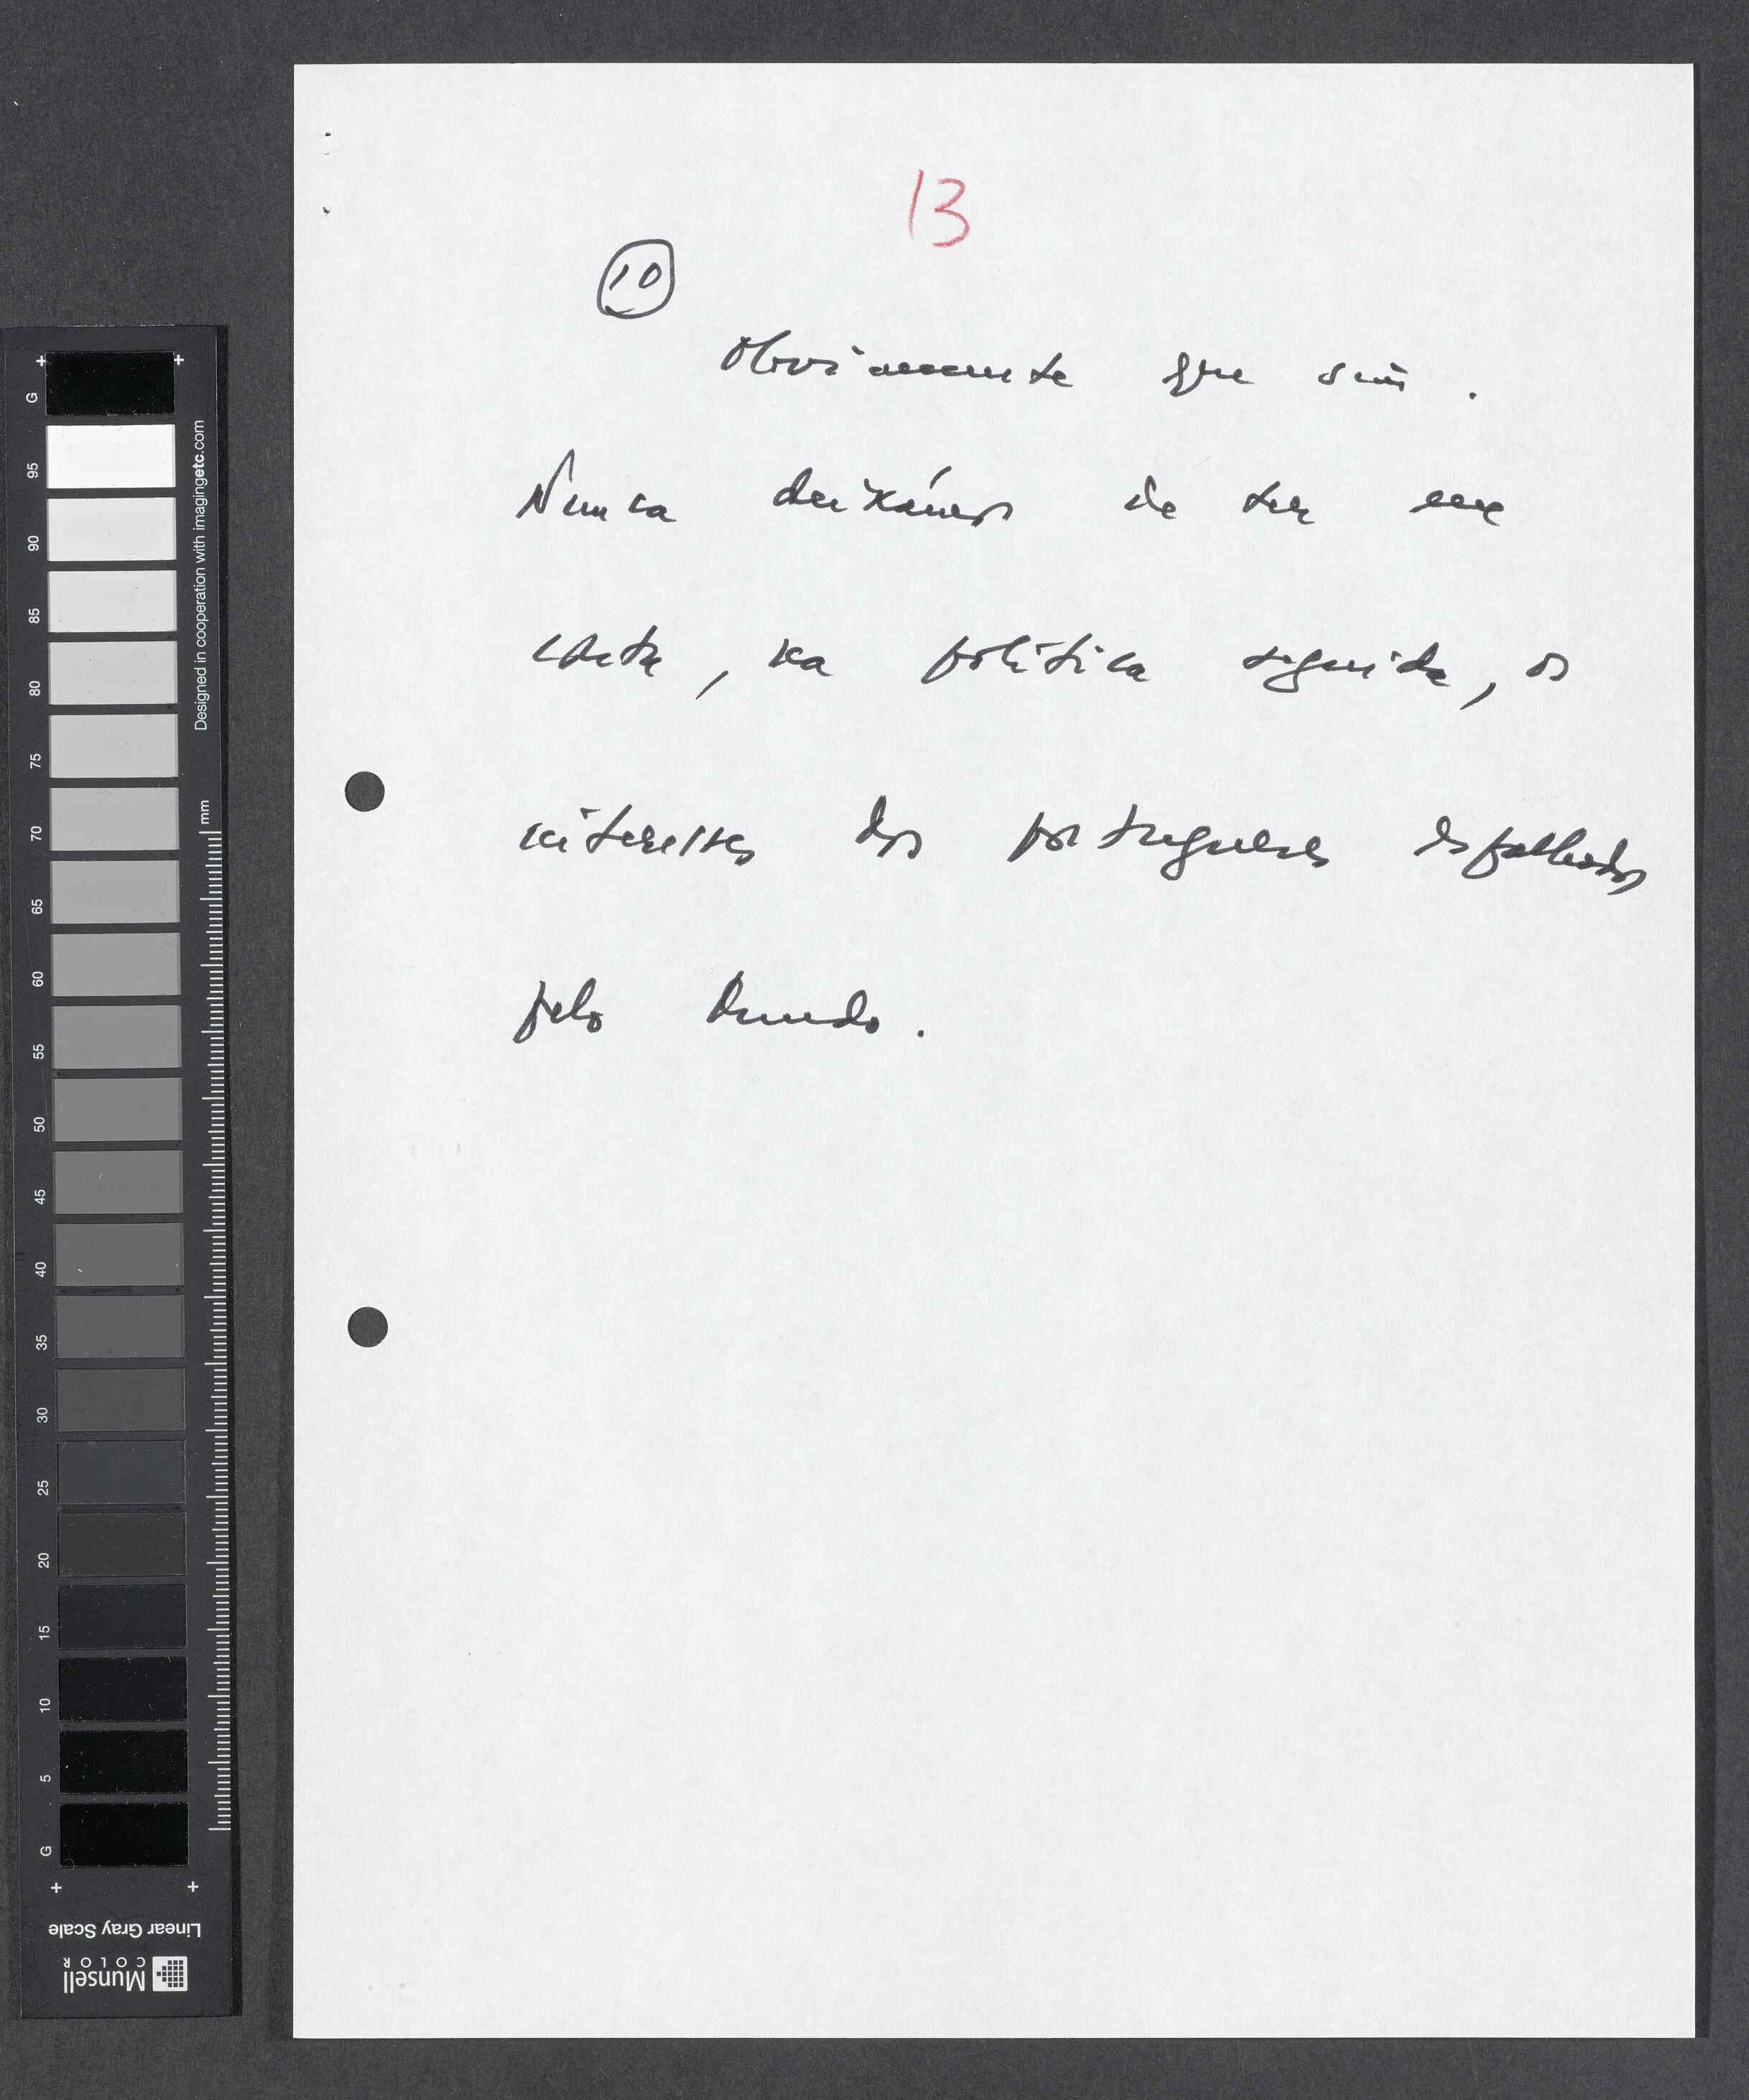 13
10
Obviamente que sim.
Nunca deixámos de ter em
conta, na política seguida, os
interesses dos portugueses espalhados
pelo mundo.
G
95
90
85
80
75
70
65
60
55
50
45
40
35
30
25
20
15
10
5
G
Designed in cooperation with imagingetc.com
mm
Linear Gray Scale
Munsell
COLOR